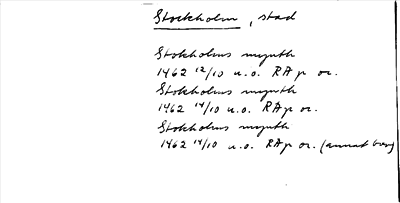 Stockholm, stad
Stokholms mynth
1462 12/10 u.o. RAp or.
Stokholms mynth
1462 14/10 u.o. RAp or.
Stokholms mynth
1462 14/10 u.o. RAp or. (annat brev)